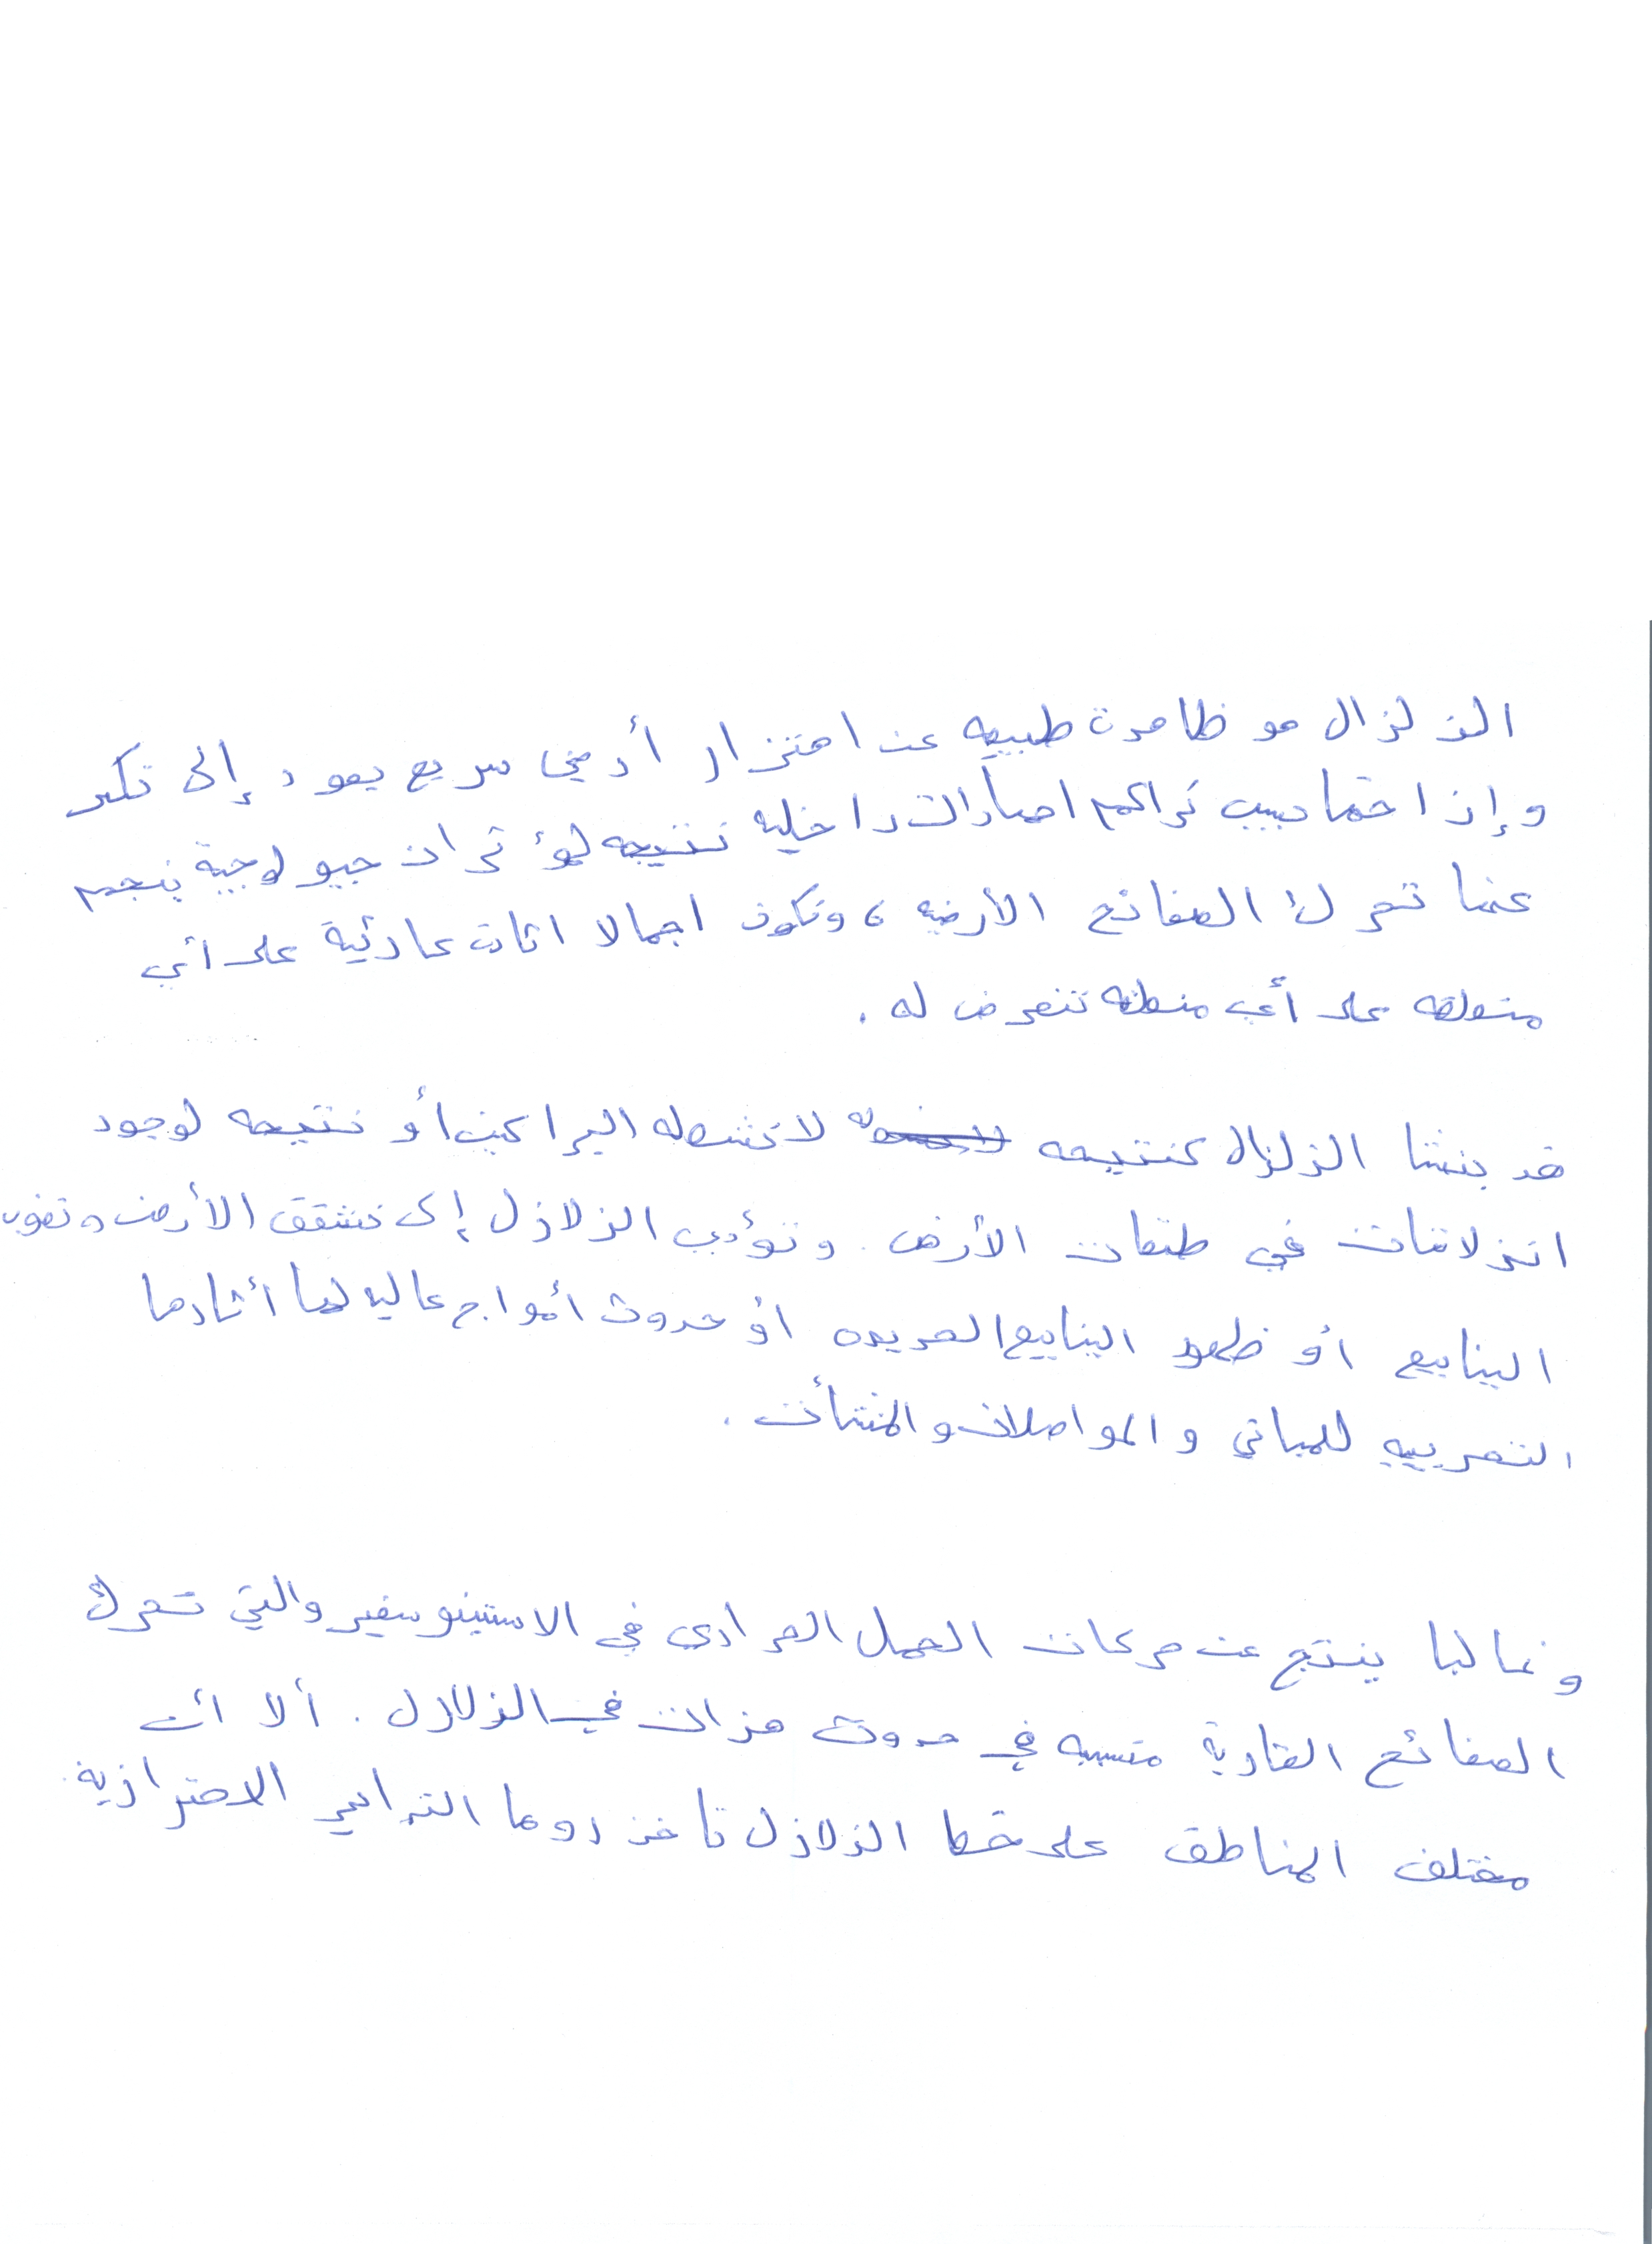 الزلزال هو ظاهرة طبيعيه عن اهتزاز أرضي سريع يعود إلى تكسر
وإزاحتها بسبب تراكم اجهادات داخليه نتيجه لمؤثرات جيولوجية ينجم
عنها تحرك الصفائح الأرضيه ، وتكون اجمالا على أي
على أي منطقه تتعرض له .
قد ينشأ الزلزال كنتيجه لأنشطه البراكين أو نتيجه لوجود
انزلاقات في طبقات الأرض . وتؤدي الزلازل إلى تشقق الأرض و نضوب
الينابيع أو ظهور الينابيع الجديده أو حدوث أمواج عاليه لها أثارها
التخريبيه للمباني و المواصلات والمنشأت .
وغالبا ينتج عن حركات الحمل الحراري في الاستينوسفير والتي تحرك
الصفائح القارية متسببه في حدوث هزات في الزلازل . ألا أن
مختلف المناطق على خط الزلازل تأخذ دوما التدابير الاحترازية